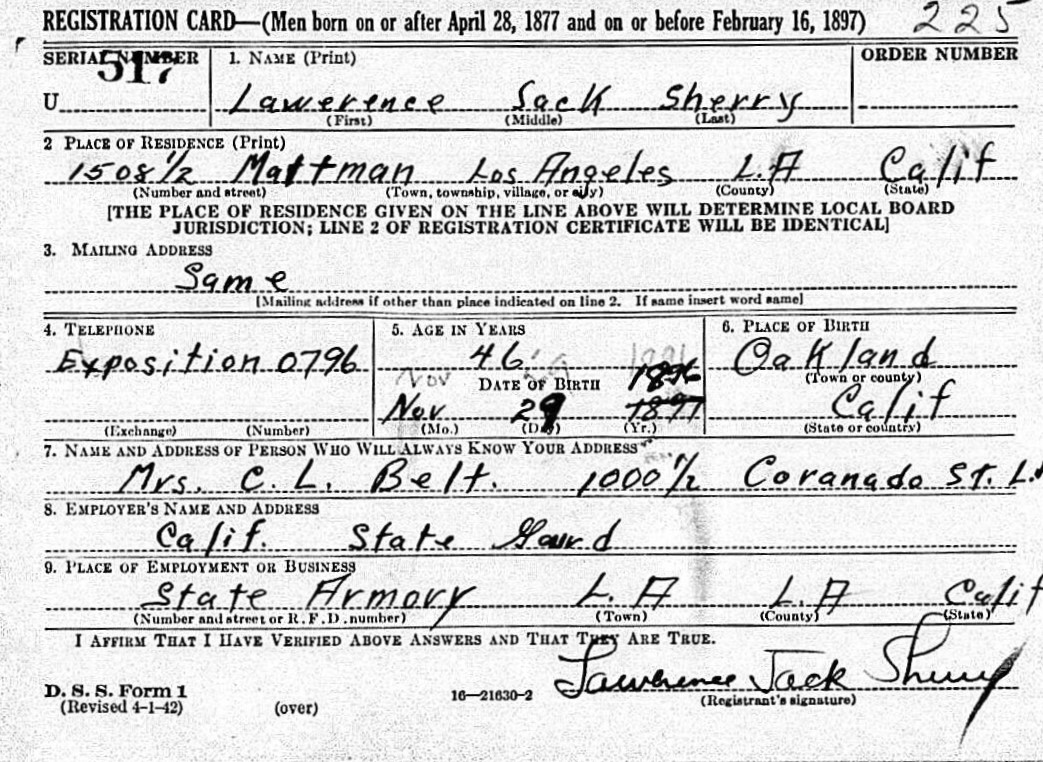 REGISTRATION CARD—(Men born on or after April 28, 1877 and on or before February 16, 1897) 225
SERIAL NUMBER 1. NAME (Print) ORDER NUMBER
517
U Lawerence Jack Sherry
(First) (Middle) (Last)
2 PLACE OF RESIDENCE (Print)
1508 1/2 Mattman Los Angeles L.A Calif
(Number and street) (Town, township, village, or city) (County) (State)
[THE PLACE OF RESIDENCE GIVEN ON THE LINE ABOVE WILL DETERMINE LOCAL BOARD
JURISDICTION; LINE 2 OF REGISTRATION CERTIFICATE WILL BE IDENTICAL]
3. MAILING ADDRESS
Same
[Mailing address if other than place indicated on line 2. If same insert word same]
4. TELEPHONE 5. AGE IN YEARS 6. PLACE OF BIRTH
Exposition 0796 46 Oakland
Nov 29 1896
DATE OF BIRTH 1896 (Town or county)
Nov 29 1897 Calif
(Exchange) (Number) (Mo.) (Day) (Yr.) (State or country)
7. NAME AND ADDRESS OF PERSON WHO WILL ALWAYS KNOW YOUR ADDRESS
Mrs. C. L. Belt. 1000 1/2 Coranado St. L.
8. EMPLOYER'S NAME AND ADDRESS
Calif. State Gaurd
9. PLACE OF EMPLOYMENT OR BUSINESS
State Armory L.A L.A Calif
(Number and street or R. F. D. number) (Town) (County) (State)
I AFFIRM THAT I HAVE VERIFIED ABOVE ANSWERS AND THAT THEY ARE TRUE.
Lawrence Jack Sherry
D. S. S. Form 1 16—21630-2 (Registrant's signature)
(Revised 4-1-42) (over)